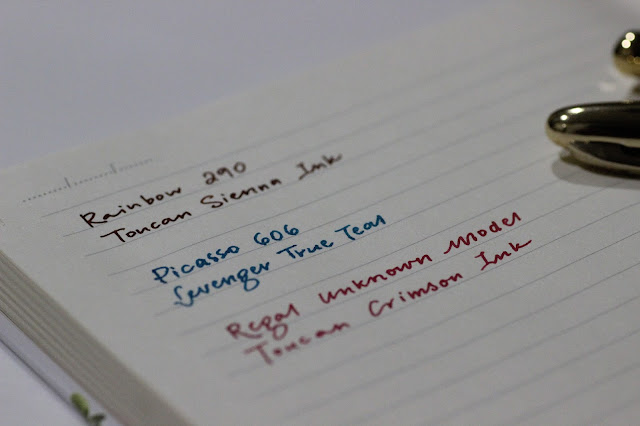 Rainbow 290
Toucan Sienna Ink
Picasso 606
Levenger True Teal
Regal unknown model
Toucan Crimson Ink